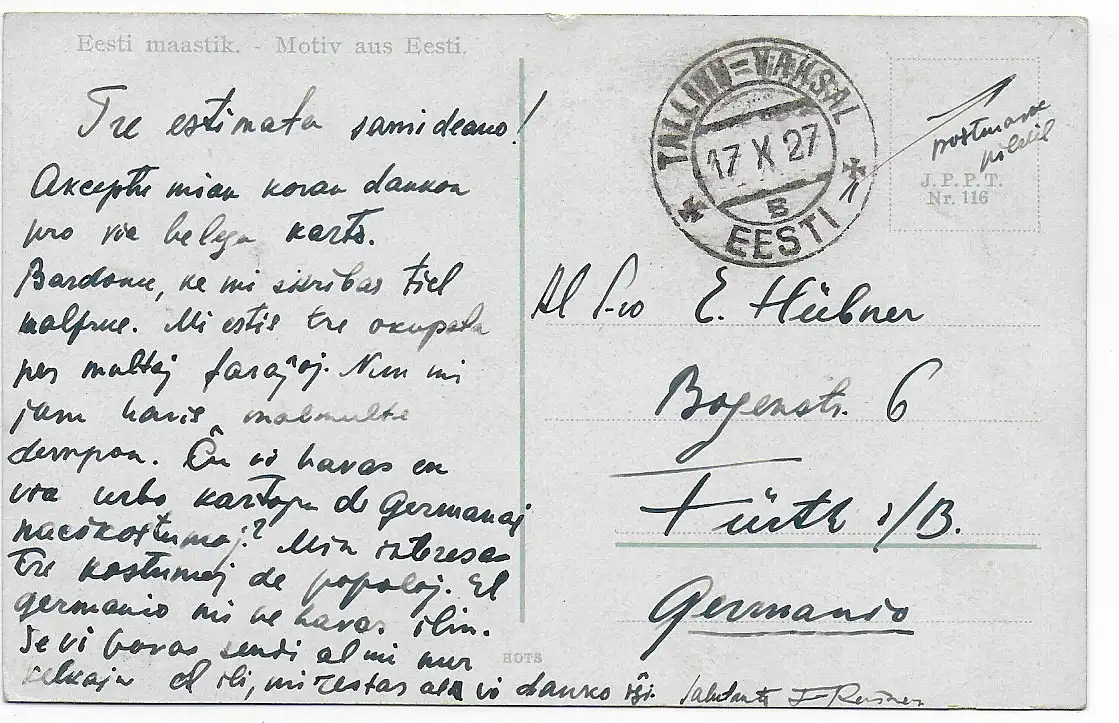 Eesti maastik. - Motiv aus Eesti.
Tre estimata samideano!
Akceptu mian koran dankon
pro via belega karto.
Bardonu, ke mi skribas tiel
malfrue. Mi estis tre okupata
per multaj faraĵoj. Nun mi
jam havis malmulte
tempon. Ĉu vi havas en
via urbo kartojn de Germanaj
nacikostumoj? Min interesas
tre kostumoj de popoloj. El
germanio mi ne havas ilin.
Se vi povas sendi al mi nur
kelkajn el ili, mi restas al vi
Salutante
TALLINN=VAKSAL
17 X 27
B
EESTI
postmark
pildil
J. P. P. T.
Nr. 116
Al S-ro E. Hübner
Bogenstr. 6
Fürth i/B.
Germanio
HOTS